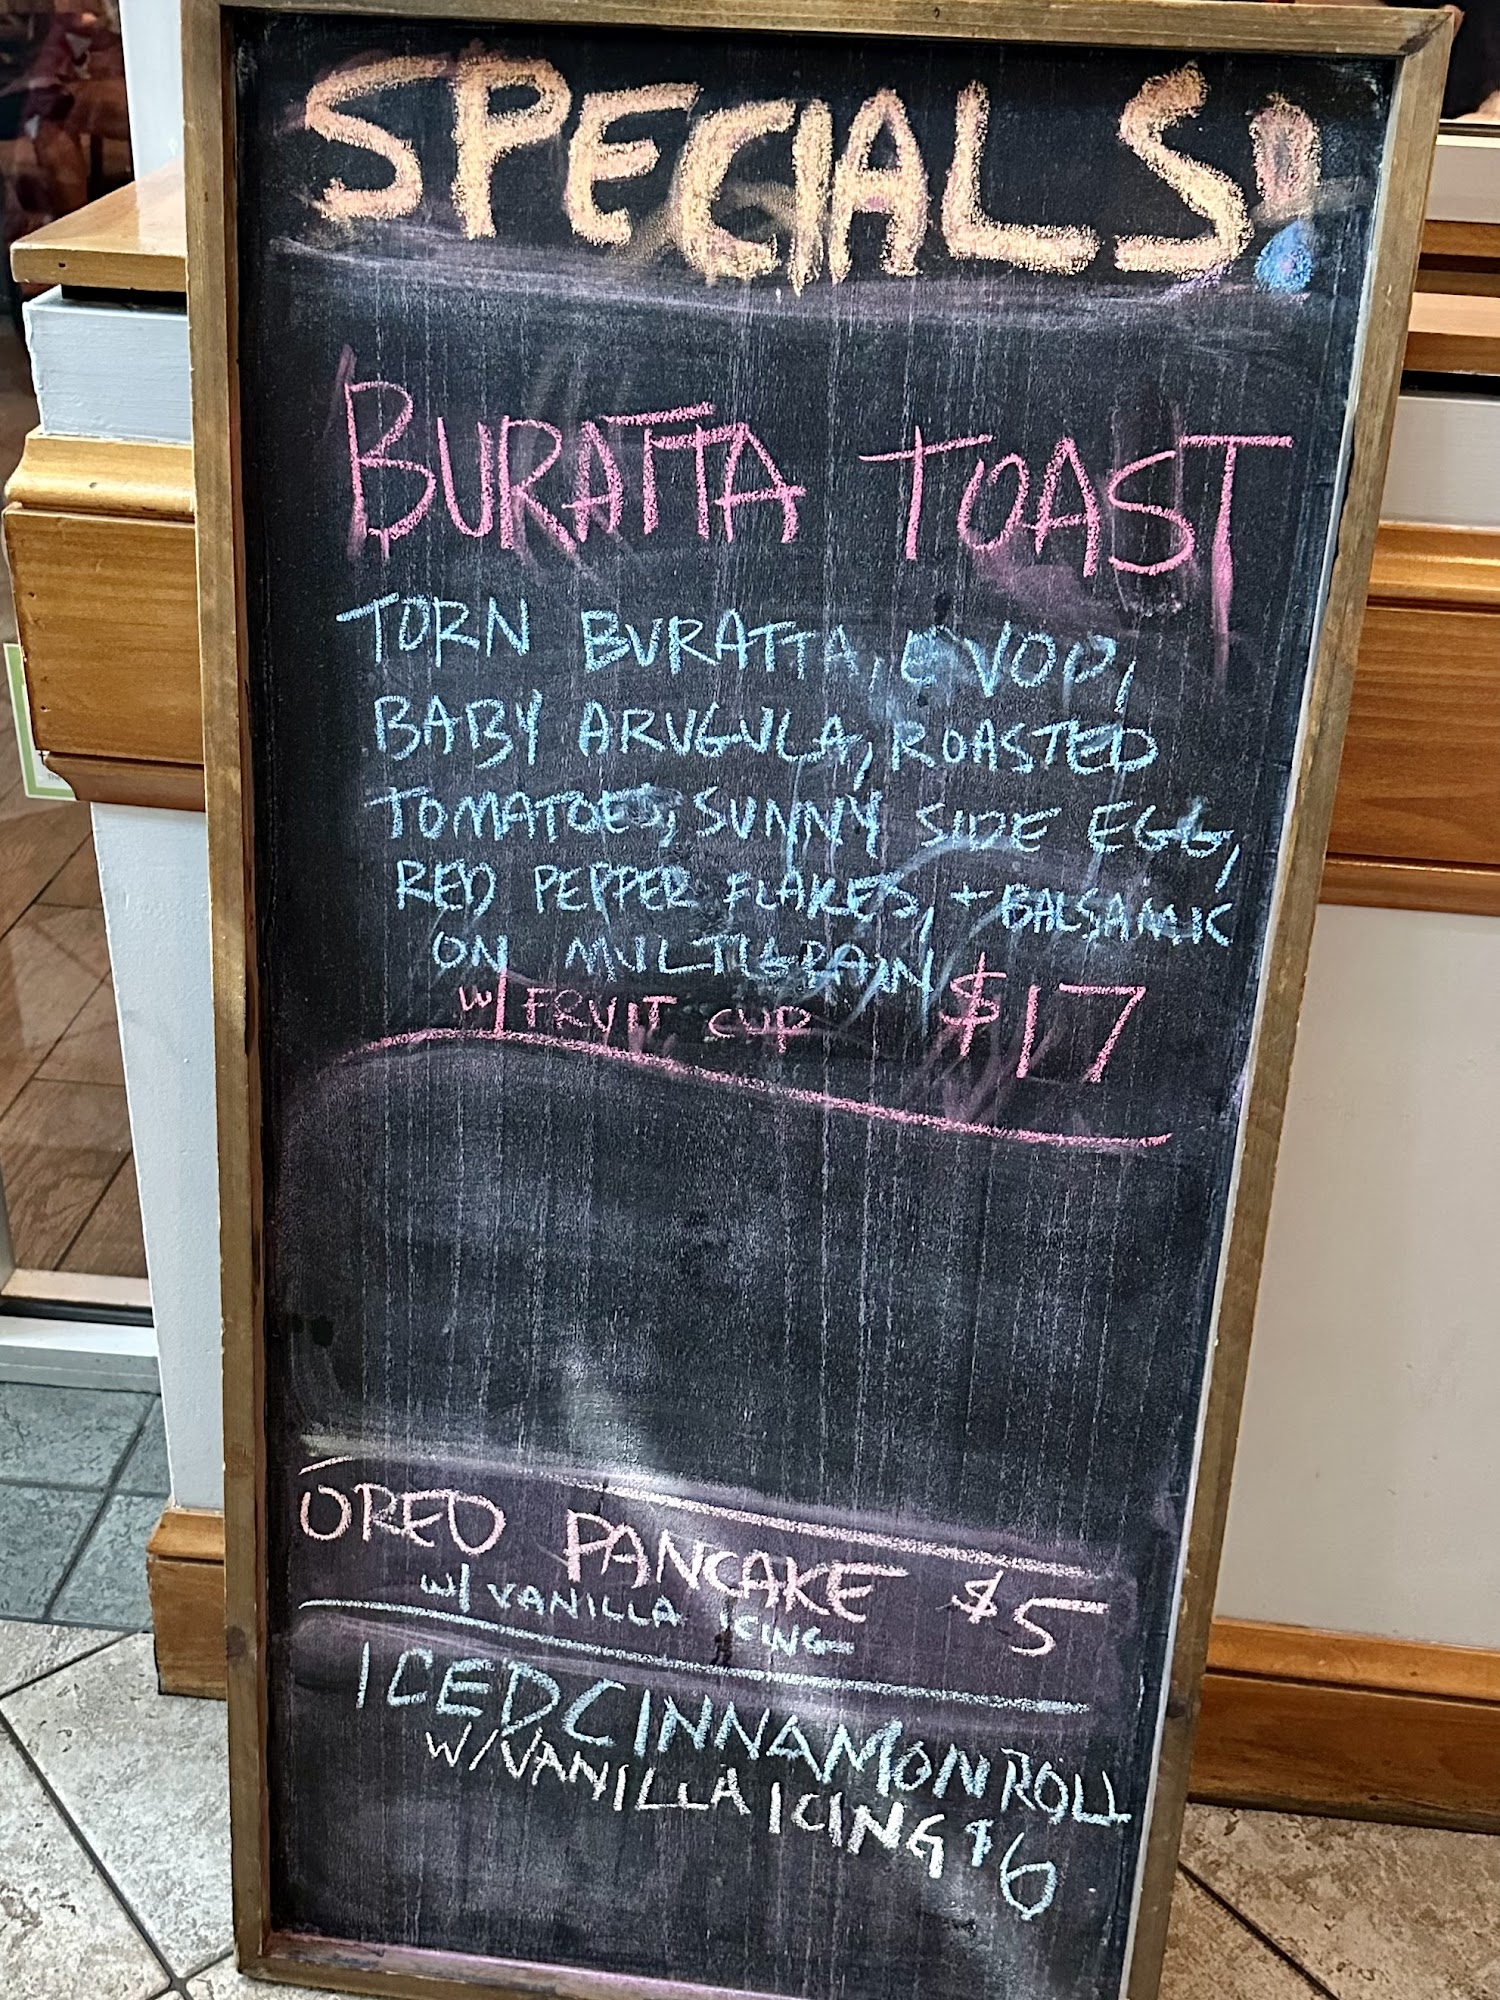 SPECIALS!
BURATTA TOAST
TORN BURATTA, EVOP,
BABY ARUGULA, ROASTED
TOMATOES, SUNNY SIDE EGG,
RED PEPPER FLAKES, + BALSAMIC
ON MULTIGRAIN
w/ FRUIT CUP $17
OREO PANCAKE $5
w/ VANILLA ICING
ICED CINNAMON ROLL
W/ VANILLA ICING $6